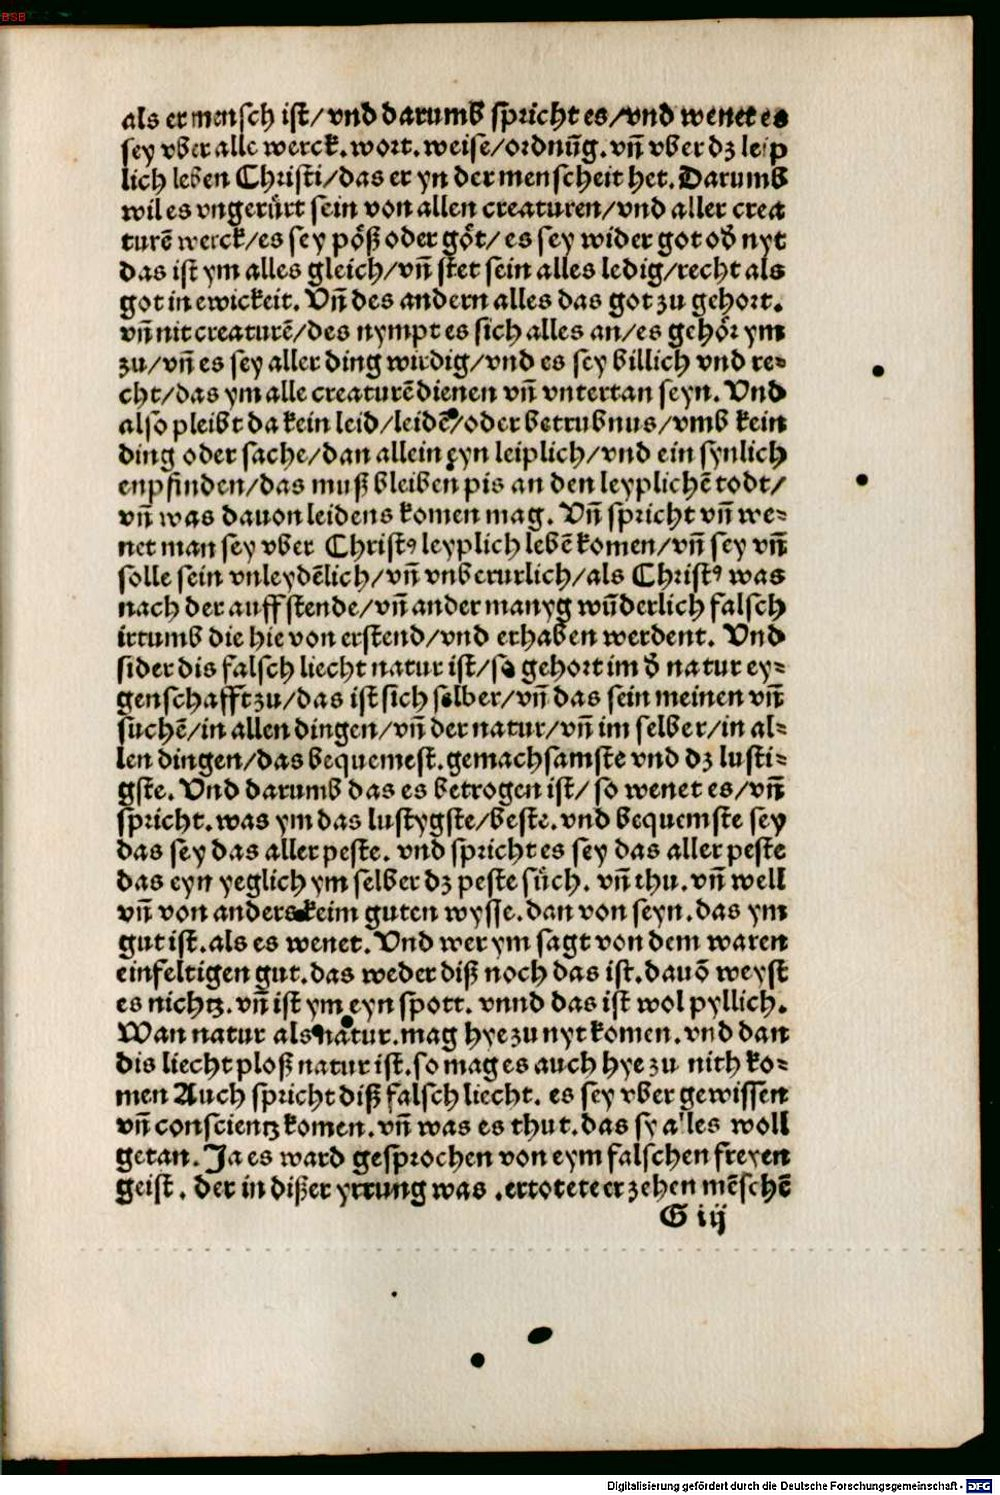 BSB
als er mensch ist/vnd darumb spricht es/vnd wenet es
sey vber alle werck.wort.weise/ordnūg.vñ vber dz leip
lich leben Christi/das er yn der menscheit het. Darumb
wil es vngerürt sein von allen creaturen/vnd aller crea
turē werck/es sey pöß oder göt/es sey wider got od̄ nyt
das ist ym alles gleich/vñ stet sein alles ledig/recht als
got in ewickeit. Vñ des andern alles das got zu gehort.
vñ nit creaturē/des nympt es sich alles an/es gehör ym
zu/vñ es sey aller ding wirdig/vnd es sey billich vnd re⸗
cht/das ym alle creaturē dienen vñ vntertan seyn. Vnd
also pleibt da kein leid/leidē/oder betrubnus/vmb kein
ding oder sache/dan allein eyn leiplich/vnd ein synlich
enpfinden/das muß bleiben pis an den leyplichē todt/
vñ was dauon leidens komen mag. Vñ spricht vñ we⸗
net man sey vber Christꝰ leyplich lebē komen/vñ sey vñ
solle sein vnleydēlich/vñ vnberurlich/als Christꝰ was
nach der auffstende/vñ ander manyg wūderlich falsch
irtumb die hie von erstend/vnd erhaben werdent. Vnd
sider dis falsch liecht natur ist/so gehort im d̄ natur ey⸗
genschafft zu/das ist sich selber/vñ das sein meinen vñ
suchē/in allen dingen/vñ der natur/vñ im selber/in al⸗
len dingen/das bequemest.gemachsamste vnd dz lusti⸗
gste. Vnd darumb das es betrogen ist/so wenet es/vñ
spricht.was ym das lustygste/beste.vnd bequemste sey
das sey das aller peste. vnd spricht es sey das aller peste
das eyn yeglich ym selber dz peste süch. vñ thu.vñ well
vñ von anders keim guten wysse.dan von seyn.das ym
gut ist.als es wenet. Vnd wer ym sagt von dem waren
einfeltigen gut.das weder diß noch das ist.dauō weyst
es nichtz.vñ ist ym eyn spott. vnnd das ist wol pyllich.
Wan natur als natur.mag hye zu nyt komen.vnd dan
dis liecht ploß natur ist.so mag es auch hye zu nith ko⸗
men Auch spricht diß falsch liecht. es sey vber gewissen
vñ conscientz komen.vñ was es thut.das sy alles woll
getan. Ja es ward gesprochen von eym falschen freyen
geist. der in dißer yrrung was .ertotete er zehen mēschē
G iij
Digitalisierung gefördert durch die Deutsche Forschungsgemeinschaft - DFG